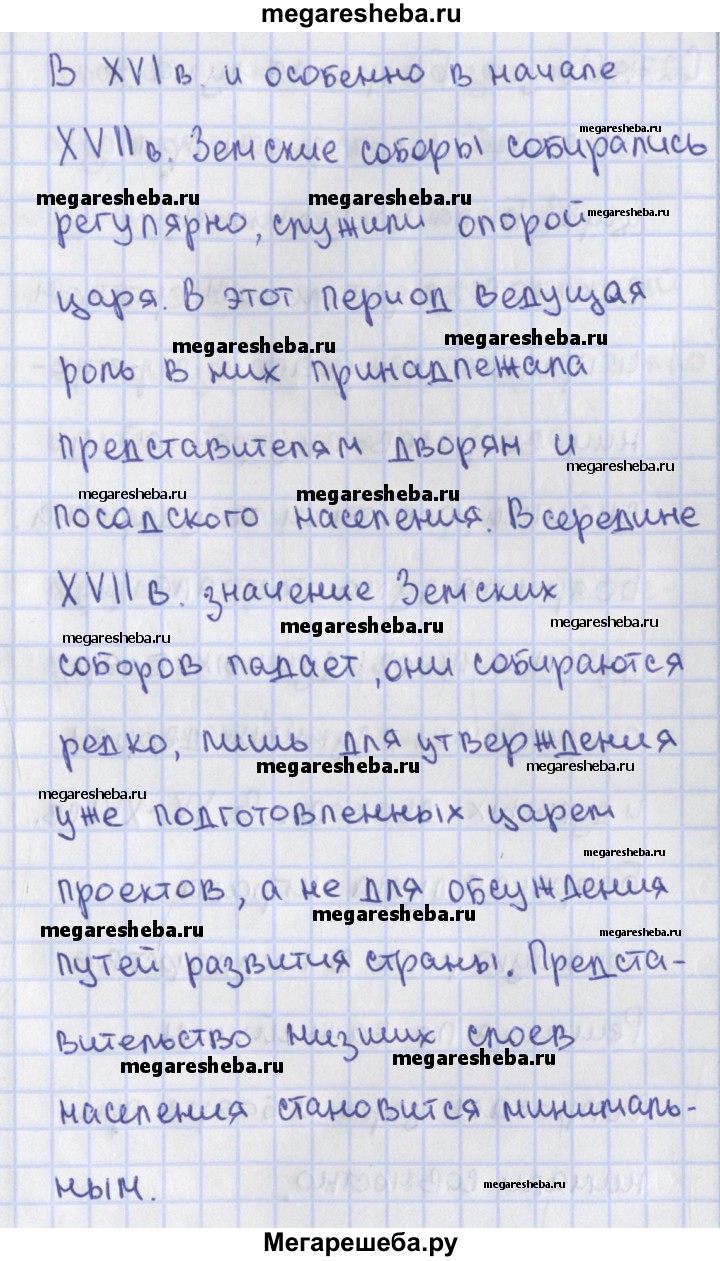 megaresheba.ru
В XVI в. и особенно в начале
megaresheba.ru
XVII в. Земские соборы собирались
megaresheba.ru megaresheba.ru megaresheba.ru
регулярно, служили опорой
царя. В этот период ведущая
megaresheba.ru megaresheba.ru
роль в них принадлежала
представителям дворян и
megaresheba.ru
megaresheba.ru megaresheba.ru
посадского населения. В середине
XVII в. значение Земских
megaresheba.ru megaresheba.ru megaresheba.ru
соборов падает, они собираются
редко, лишь для утверждения
megaresheba.ru megaresheba.ru
megaresheba.ru
уже подготовленных царем
megaresheba.ru
проектов, а не для обсуждения
megaresheba.ru megaresheba.ru megaresheba.ru
путей развития страны. Предста-
вительство низших слоев
megaresheba.ru megaresheba.ru
населения становится минималь-
ным.
megaresheba.ru
Мегарешеба.ру